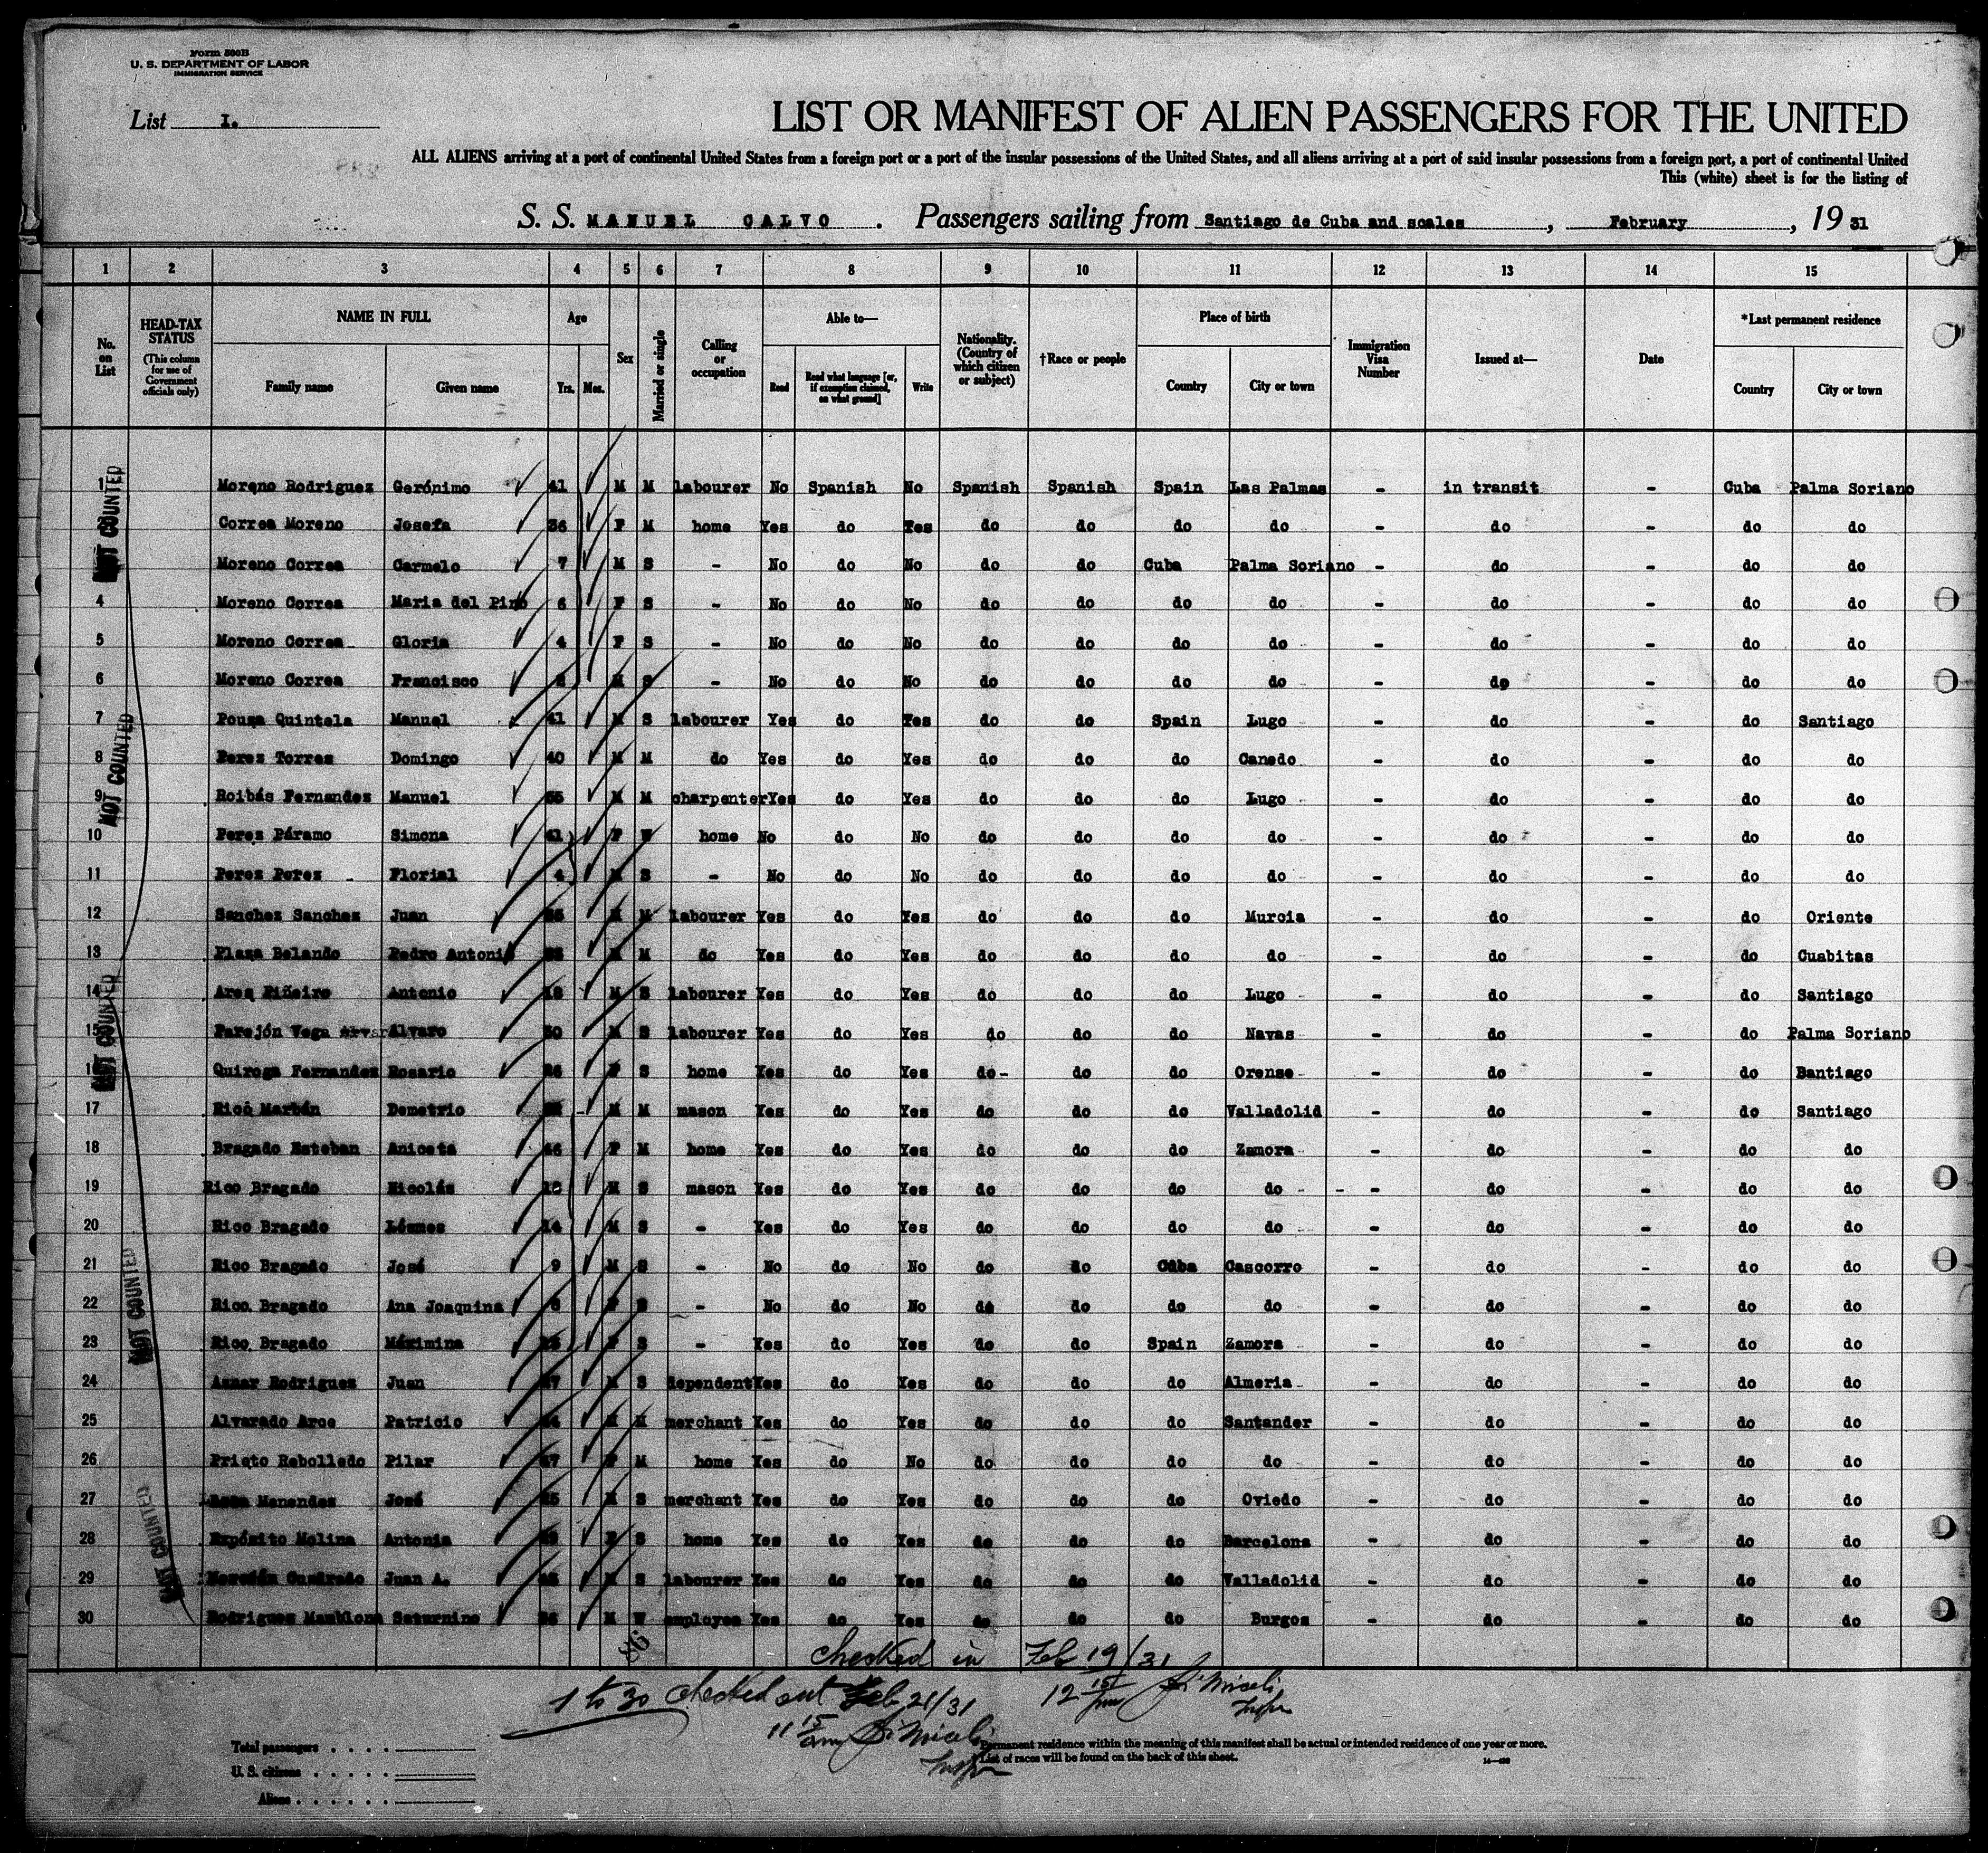 Form 500B
U. S. DEPARTMENT OF LABOR
IMMIGRATION SERVICE
List I.
LIST OR MANIFEST OF ALIEN PASSENGERS FOR THE UNITED
ALL ALIENS arriving at a port of continental United States from a foreign port or a port of the insular possessions of the United States, and all aliens arriving at a port of said insular possessions from a foreign port, a port of continental United
This (white) sheet is for the listing of
S. S. MANUEL CALVO. Passengers sailing from Santiago de Cuba and scales, February, 19 31
1 2 3 4 5 6 7 8 9 10 11 12 13 14 15
No. on List
HEAD-TAX STATUS (This column for use of Government officials only)
NAME IN FULL Family name Given name
Age Yrs. Mos.
Sex
Married or single
Calling or occupation
Able to— Read Read what language [or, if exemption claimed, on what ground] Write
Nationality. (Country of which citizen or subject)
†Race or people
Place of birth Country City or town
Immigration Visa Number
Issued at—
Date
*Last permanent residence Country City or town
1 Moreno Rodriguez Gerónimo 41 M M labourer No Spanish No Spanish Spanish Spain Las Palmas - in transit - Cuba Palma Soriano
Correa Moreno Josefa 36 F M home Yes do Yes do do do do - do - do do
Moreno Correa Carmelo 7 M S - No do No do do Cuba Palma Soriano - do - do do
4 Moreno Correa Maria del Pino 6 F S - No do No do do do do - do - do do
5 Moreno Correa Gloria 4 F S - No do No do do do do - do - do do
6 Moreno Correa Francisco M S - No do No do do do do - do - do do
7 Pouza Quintela Manuel 41 M S labourer Yes do Yes do do Spain Lugo - do - do Santiago
8 Perez Torres Domingo 40 M M do Yes do Yes do do do Canedo - do - do do
9 Roibás Fernandez Manuel M M charpenter Yes do Yes do do do Lugo - do - do do
10 Perez Páramo Simona 41 F W home No do No do do do do - do - do do
11 Perez Perez Florial 4 M S - No do No do do do do - do - do do
12 Sanchez Sanchez Juan M M labourer Yes do Yes do do do Murcia - do - do Oriente
13 Plaza Belando Pedro Antonio M M do Yes do Yes do do do do - do - do Cuabitas
14 Ares Piñeiro Antonio M S labourer Yes do Yes do do do Lugo - do - do Santiago
15 Parejón Vega Álvaro 30 M S labourer Yes do Yes do do do Navas - do - do Palma Soriano
16 Quiroga Fernandez Rosario F S home Yes do Yes do- do do Orense - do - do Bantiago
17 Rico Martín Demetrio M M mason Yes do Yes do do do Valladolid - do - do Santiago
18 Bragado Esteban Aniceta 46 F M home Yes do Yes do do do Zamora - do - do do
19 Rico Bragado Nicolás 18 M S mason Yes do Yes do do do do - do - do do
20 Rico Bragado Lésmes 14 M S - Yes do Yes do do do do - do - do do
21 Rico Bragado José 9 M S - No do No do do Cuba Cascorro - do - do do
22 Rico Bragado Ana Joaquina F S - No do No do do do do - do - do do
23 Rico Bragado Máximina F S - Yes do Yes do do Spain Zamora - do - do do
24 Aznar Rodriguez Juan M S dependent Yes do Yes do do do Almeria - do - do do
25 Alvarado Arce Patricio M M merchant Yes do Yes do do do Santander - do - do do
26 Prieto Rebolledo Pilar F M home Yes do No do do do do - do - do do
27 Menendez José M S merchant Yes do Yes do do do Oviedo - do - do do
28 Expósito Molina Antonia F S home Yes do Yes do do do Barcelona - do - do do
29 Cuadrado Juan A. M S labourer Yes do Yes do do do Valladolid - do - do do
30 Rodriguez Saturnino M W employee Yes do Yes do do do Burgos - do - do do
NOT COUNTED
NOT COUNTED
NOT COUNTED
NOT COUNTED
NOT COUNTED
checked in Feb 19/31
1 to 30 checked out Feb 21/31
12 15 pm Miceli Inspr
11 15 am Miceli Inspr
Total passengers
U. S. citizens
Aliens
Permanent residence within the meaning of this manifest shall be actual or intended residence of one year or more.
List of races will be found on the back of this sheet.